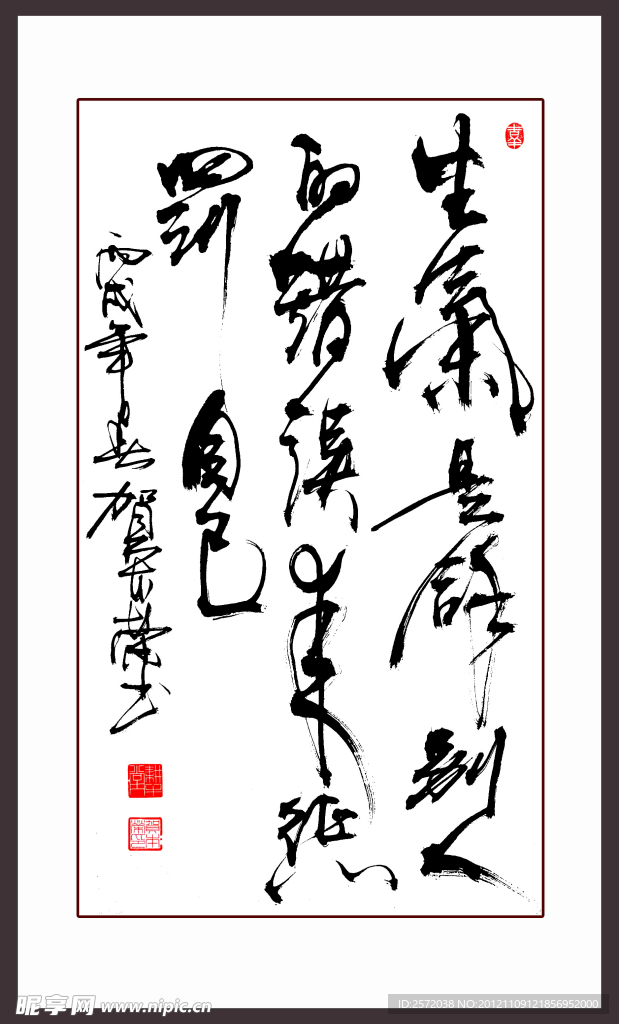 生氣是拿别人
的错误来惩
罚自己
丙戌年春贺長荣书
昵享网 www.nipic.cn
ID:2572038 NO:20121109121856952000